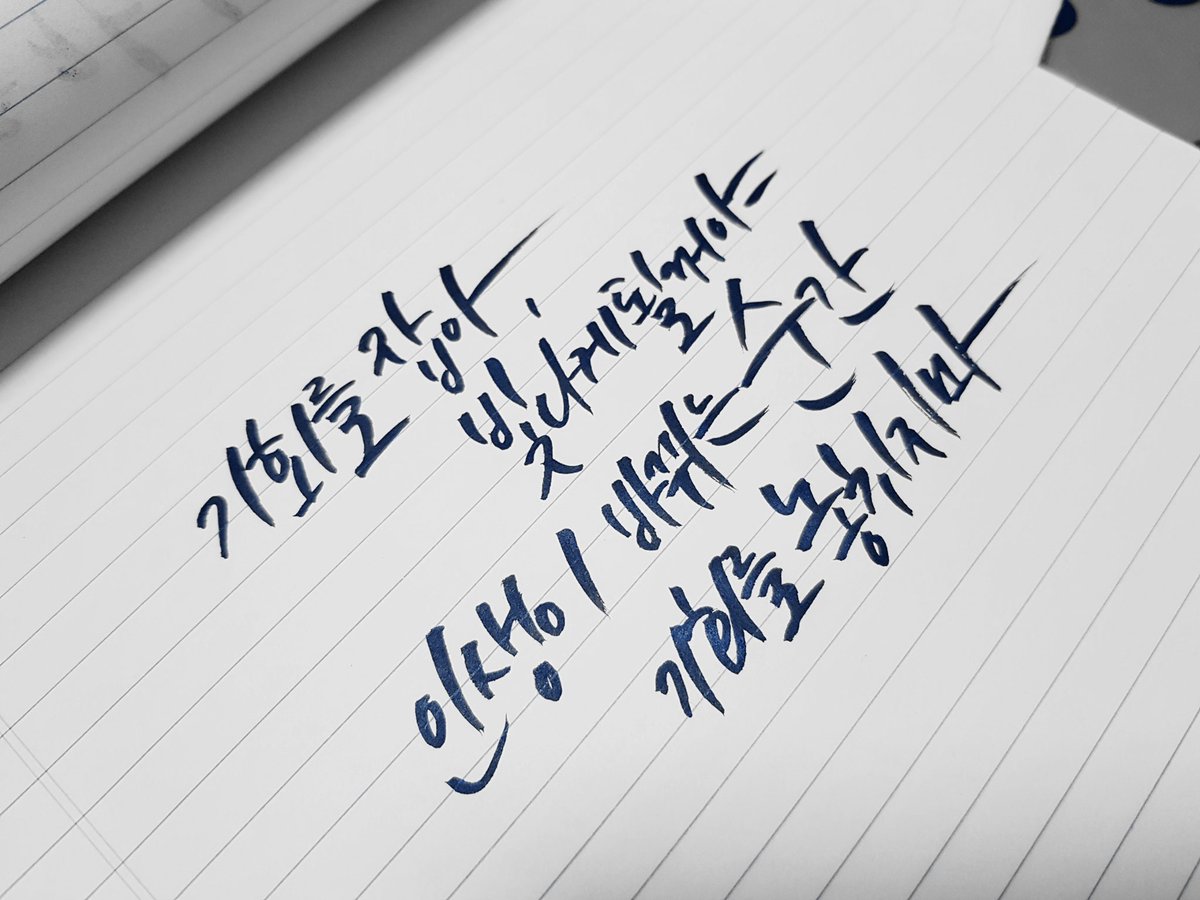 기회를 잡아
빛나게 될꺼야
인생이 바뀌는 순간
기회를 놓취지마